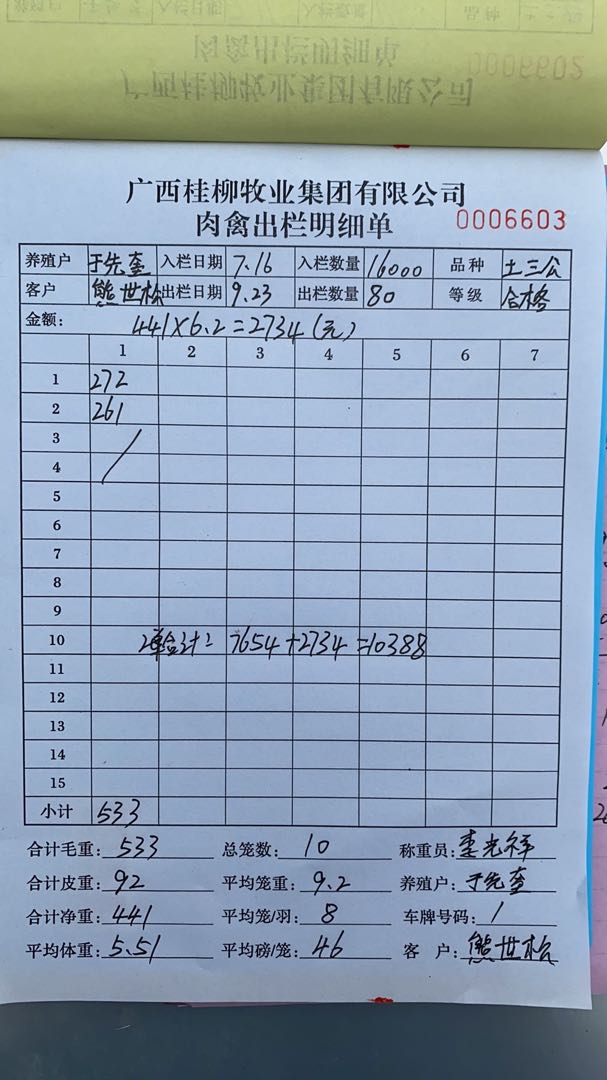 养殖户 入栏日期 入栏数量 品种
肉禽出栏明细单 0006602
广西桂柳牧业集团有限公司
广西桂柳牧业集团有限公司
肉禽出栏明细单 0006603
养殖户 于先奎 入栏日期 7.16 入栏数量 16000 品种 土三公
客户 熊世松 出栏日期 9.23 出栏数量 80 等级 合格
金额: 441×6.2=2734(元)
1 2 3 4 5 6 7
1 272
2 261
3
4
5
6
7
8
9
10 2单合计= 7654+2734=10388
11
12
13
14
15
小计 533
合计毛重: 533 总笼数: 10 称重员: 光祥
合计皮重: 92 平均笼重: 9.2 养殖户: 于先奎
合计净重: 441 平均笼/羽: 8 车牌号码: /
平均体重: 5.51 平均磅/笼: 46 客 户: 熊世松